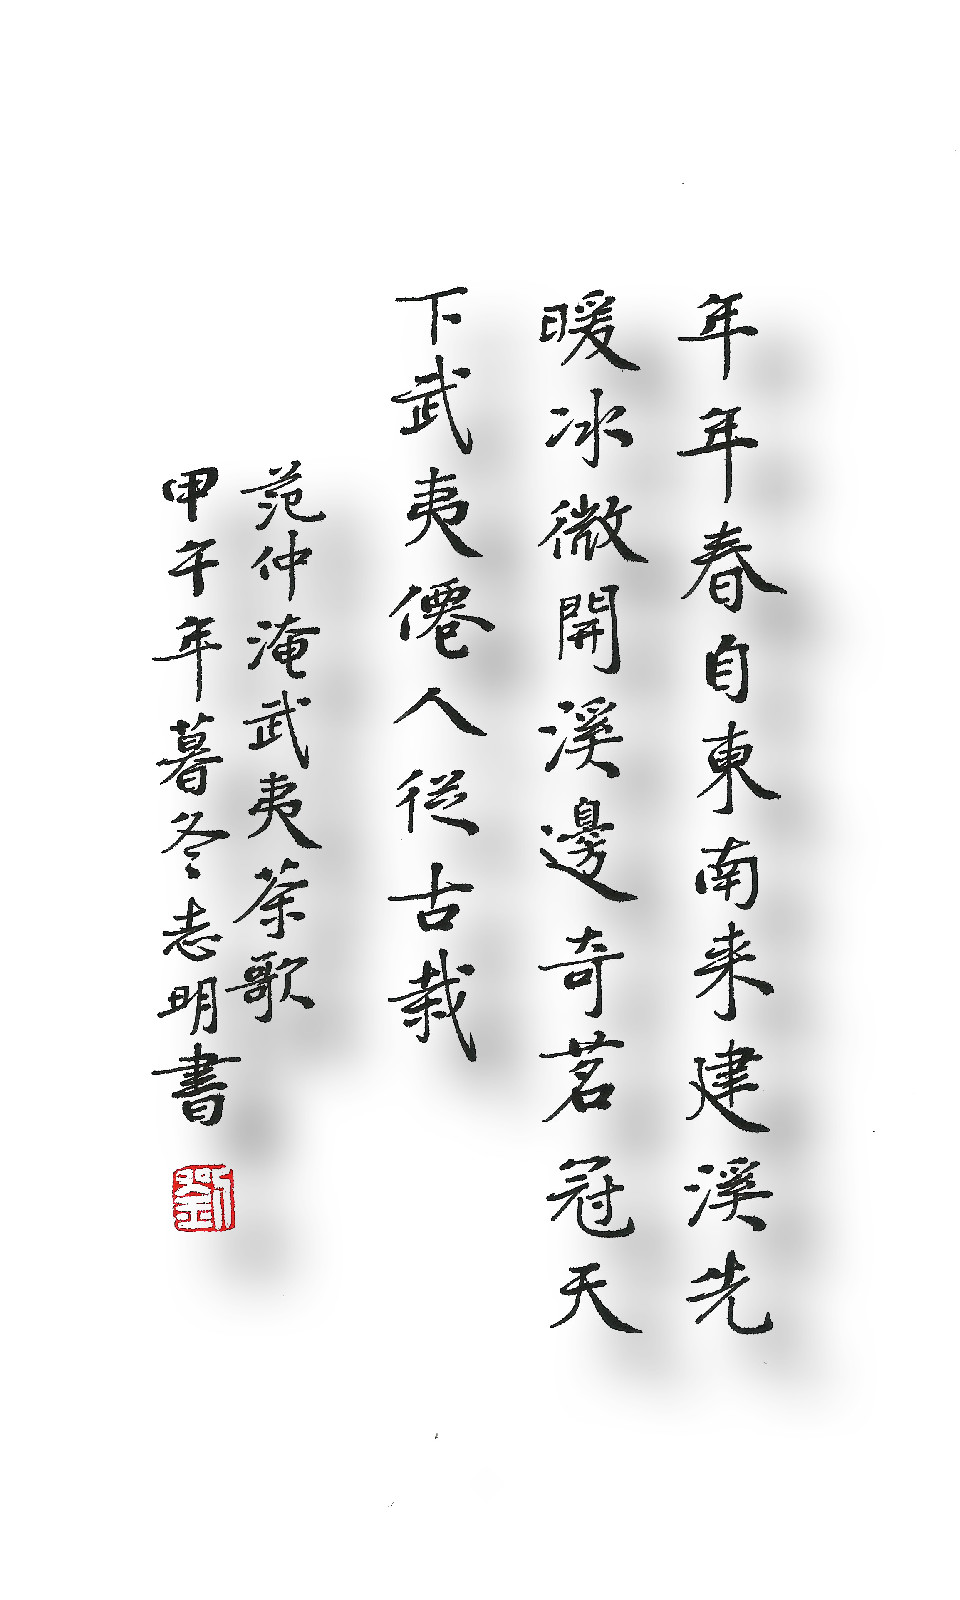 年年春自東南来建溪先
暖冰微開溪邊奇茗冠天
下武夷僊人從古栽
范仲淹武夷茶歌
甲午年暮冬志明書
劉